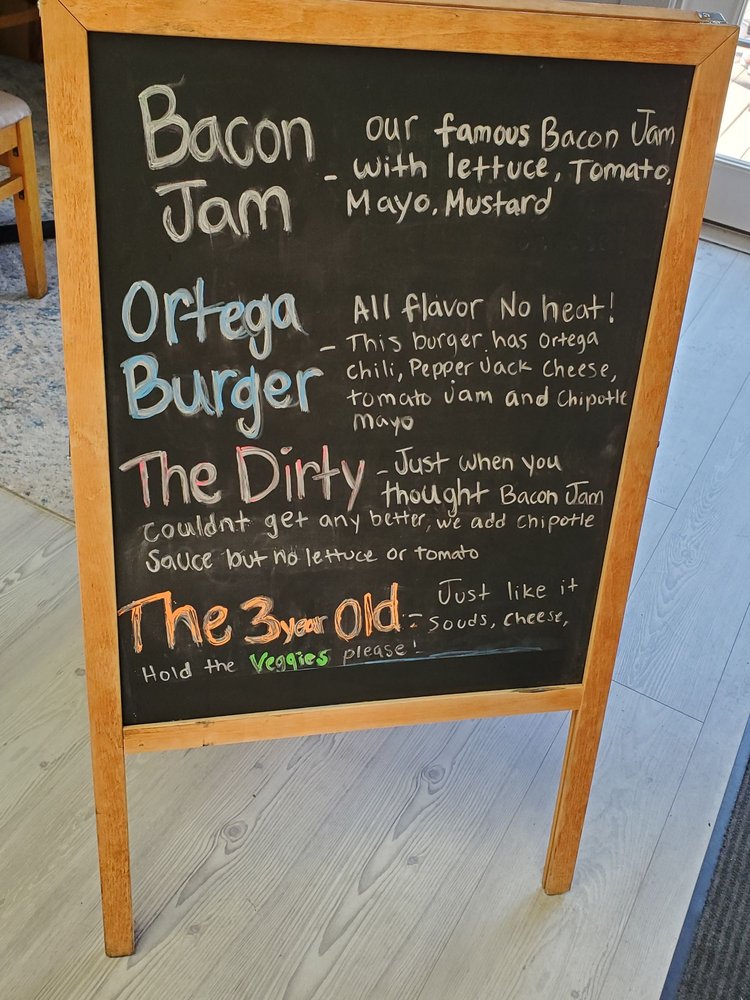 Bacon Jam - our famous Bacon Jam
with lettuce, Tomato,
Mayo, Mustard
Ortega Burger - All flavor No heat!
This burger has ortega
chili, Pepper Jack Cheese,
tomato jam and Chipotle
mayo
The Dirty - Just when you
thought Bacon Jam
couldnt get any better, we add chipotle
sauce but no lettuce or tomato
The 3 year Old - Just like it
souds, cheese,
Hold the Veggies please!